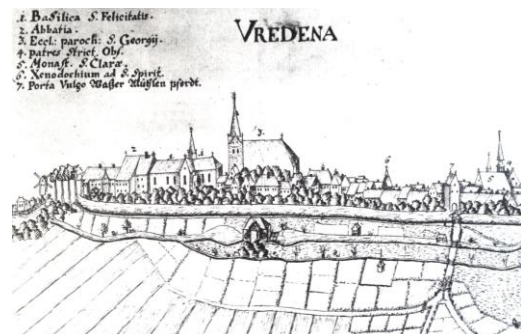 1. Basilica S. Felicitatis.
2. Abbatia.
3. Eccl: paroch: S. Georgij.
4. patres Strict. Obs.
5. Monast. S. Claræ.
6. Xenodochium ad S. Spirit.
7. Porta Vulgo Waßer Mühlen pfordt.
VREDENA
2
3
6
7
5